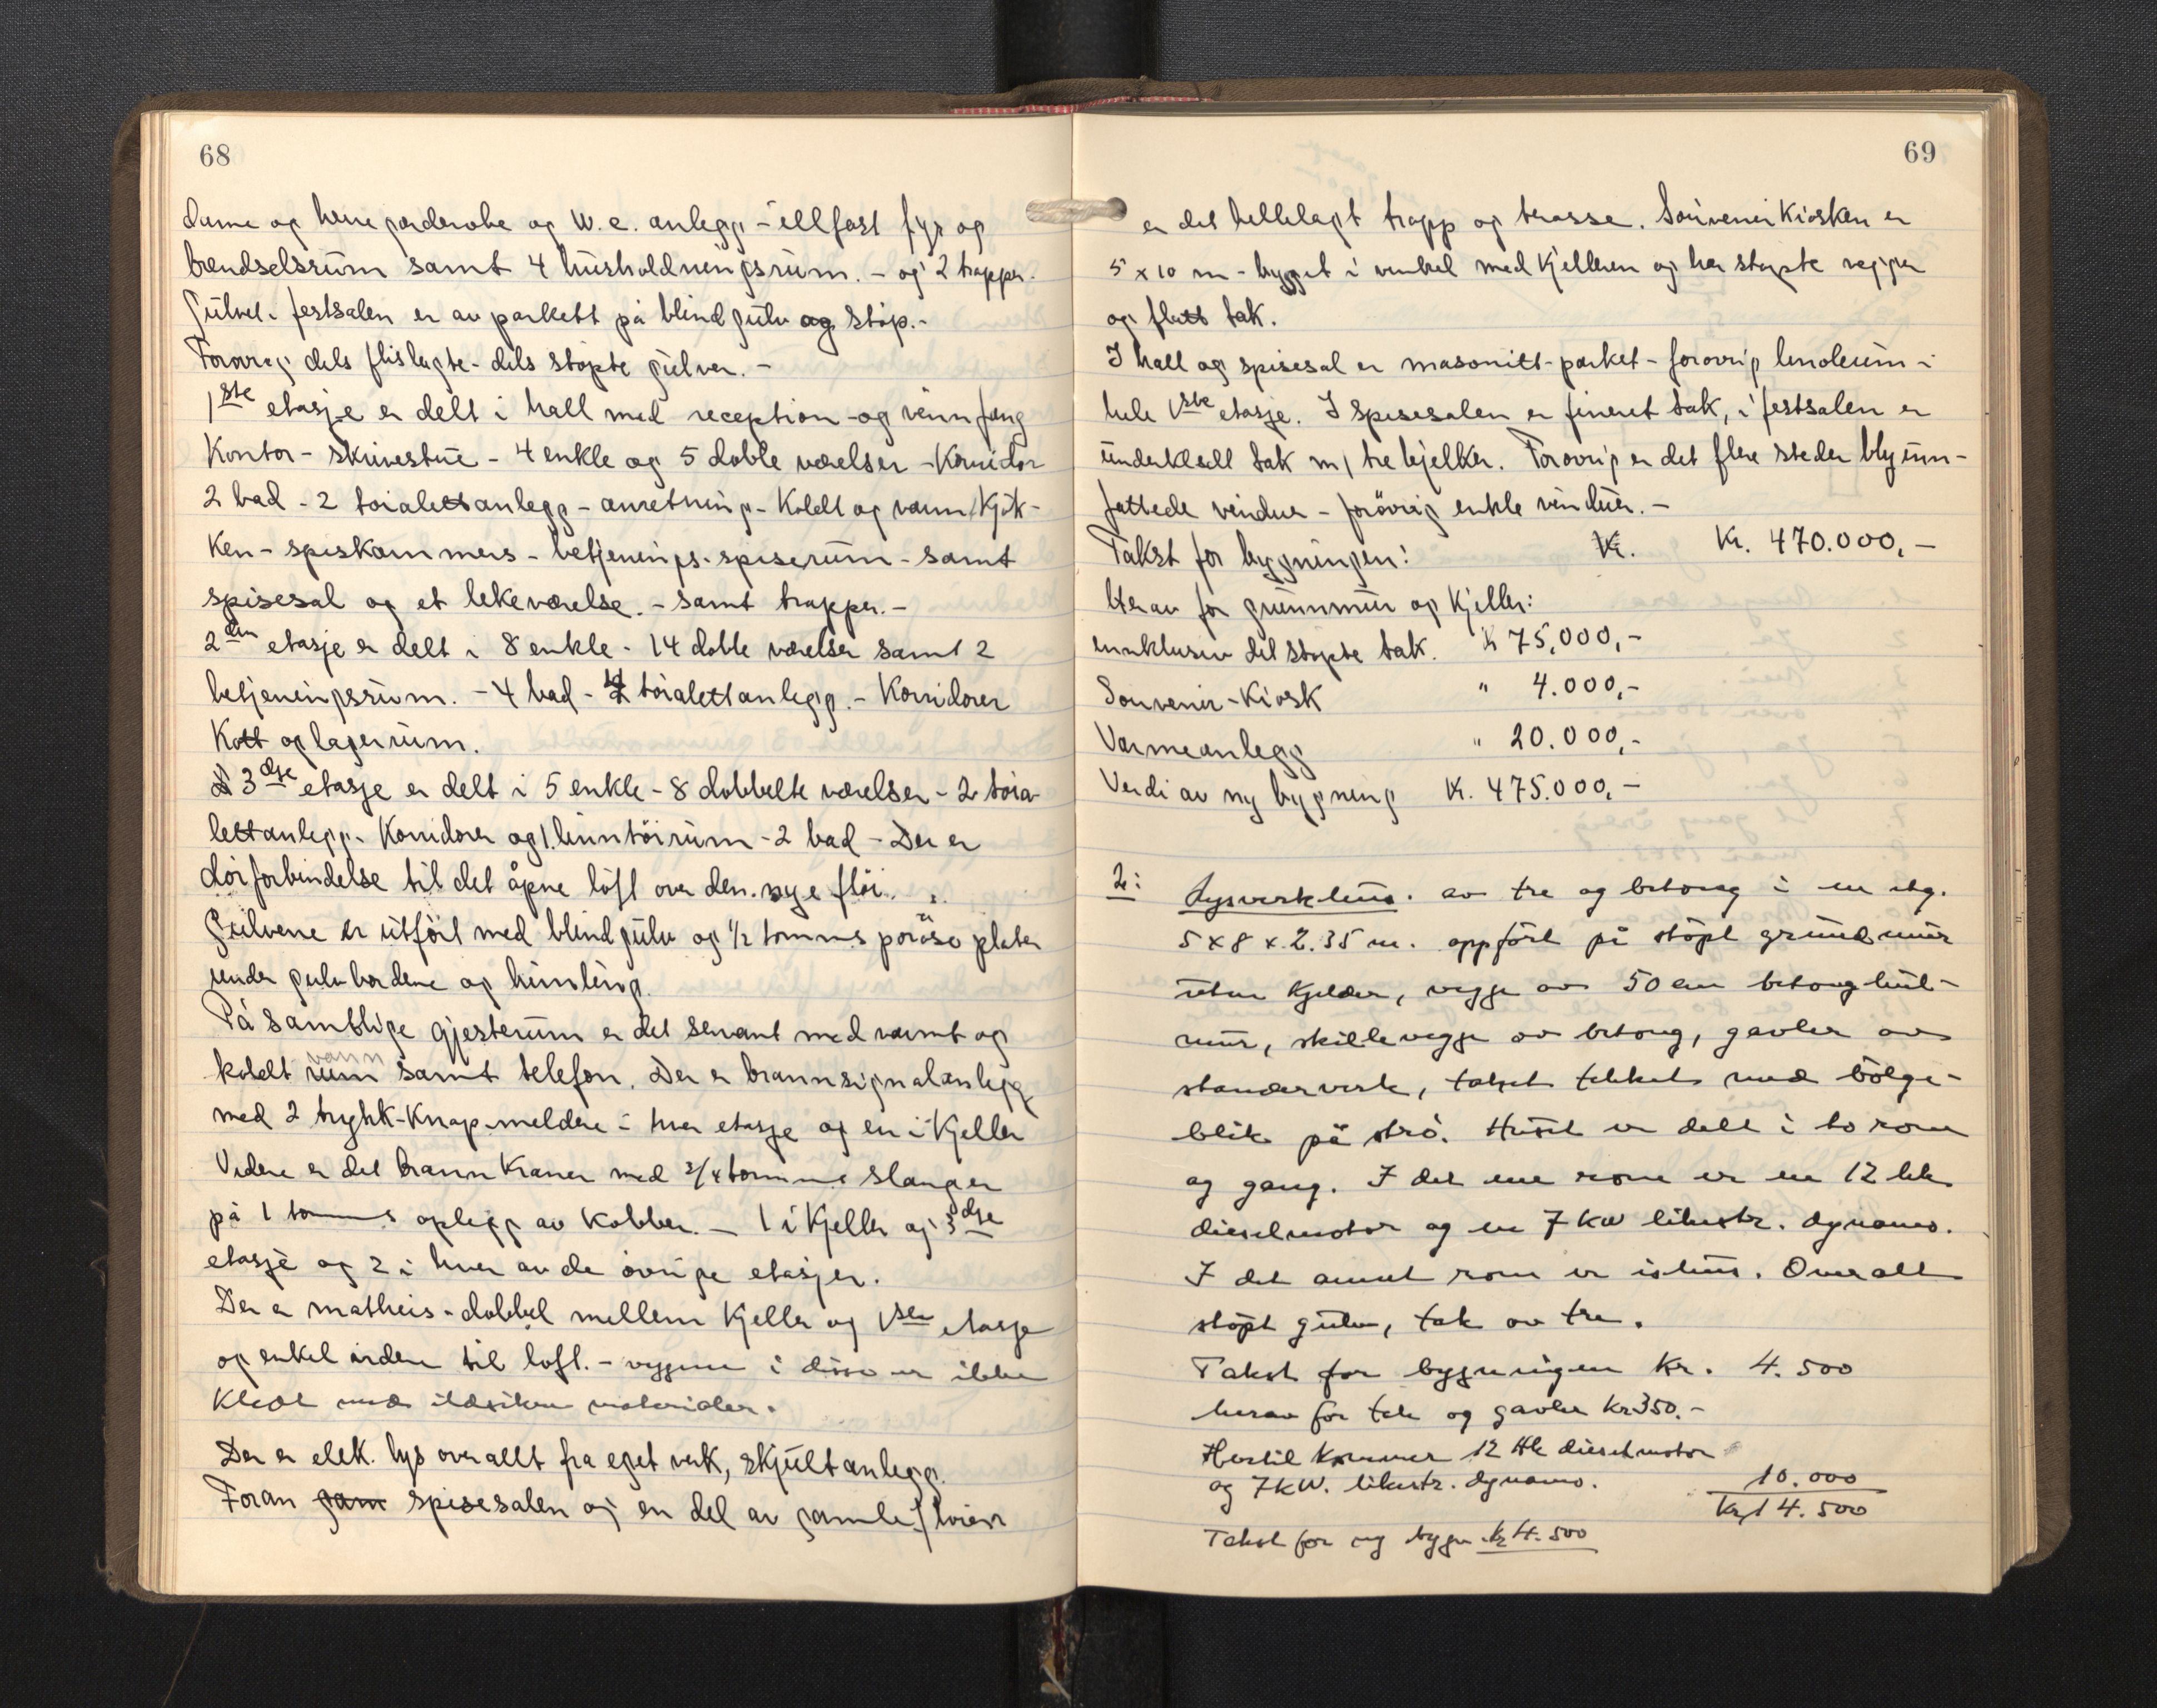 68
dame og herre garderobe og W.c. anlegg - illfast fyr og
brendselsrum samt 4 husholdningsrum. - og 2 trapper.
Gulvet i festsalen er av parkett på blindgulv og støp.-
Forøvrig dels flislagte - dels støpte gulver. -
1ste etasje er delt i hall med reception - og vinnfang
Kontor - skrivestue - 4 enkle og 5 doble værelser - Korridor
2 bad - 2 toialettanlegg - anretning - Koldt og varm Kjøk-
ken - spiskammers - betjenings-spiserum - samt
spisesal og et lekeværelse. - samt trapper. -
2den etasje er delt i 8 enkle - 14 doble værelser samt 2
betjeningsrum. - 4 bad - 4 toialettanlegg. - Korridorer
Kott og lagerrum.
3dje etasje er delt i 5 enkle - 8 dobbelte værelser - 2 toia-
lettanlegg. Korridorer og 1 linntöirum - 2 bad - Der er
dörforbindelse til det åpne löft over den nye flöi.
Gulvene er utfört med blindgulv og 1/2 tomms poröse plater
under gulvbordene og himling.
På samtlige gjesterum er det servant med varmt og
koldt rum vann samt telefon. Der er brannsignalanlegg
med 2 trykk-Knap-meldere i hver etasje og en i Kjeller
Videre er det brannkraner med 3/4 tomme slanger
på 1 tomms oplegg av Kobber. - 1 i Kjeller og 3dje
etasje og 2 i hver av de øvrige etasjer.
Der er matheis - dobbel mellem Kjeller og 1ste etasje
og enkel videre til loft. - veggene i disse er ikke
kledt med ildsikre materialer.
Der er elek. lys overallt fra eget verk, skjult anlegg.
Foran gam spisesalen og en del av gamle fløien
69
er det hellelagt trapp og terasse. Souvenirkiosken er
5 x 10 m - bygget i vinkel med Kjelleren og har støpte vegger
og flatt tak.
I hall og spisesal er masonitt-parket - forøvrig linoleum i
hele 1ste etasje. I spisesalen er fineret tak, i festsalen er
underkledt tak m/ tre bjelker. Forøvrig er det flere steder blyinn-
fattede vinduer - forøvrig enkle vinduer. -
Takst for bygningen: Kr. Kr. 470.000,-
Herav for grunnmur og Kjeller:
innklusiv det støpte tak. Kr 75.000,-
Souvenir-Kiosk " 4.000,-
Varmeanlegg " 20.000,-
Verdi av ny bygning Kr. 475.000,-
2: Lysverkhus. av tre og betong i en etg.
5 x 8 x 2.35 m. oppfört på stöpt grundmur
uten kjelder, vegge av 50 cm betonghul-
mur, skillevegge av betong, gavler av
stenderverk, taket tekket med bölge-
blik på stro. Huset er delt i to rom
og gang. I det ene rom er en 12 hk
dieselmotor og en 7 kw likestr. dynamo.
I det annet rom er ishus. Overalt
stöpt gulv, tak av tre.
Takst for bygningen Kr. 4.500
herav for tak og gavler kr 350.-
Hertil kommer 12 Hk dieselmotor
og 7 kW. likestr. dynamo. 10.000
Kr 14.500
Takst for ny bygn kr 4.500